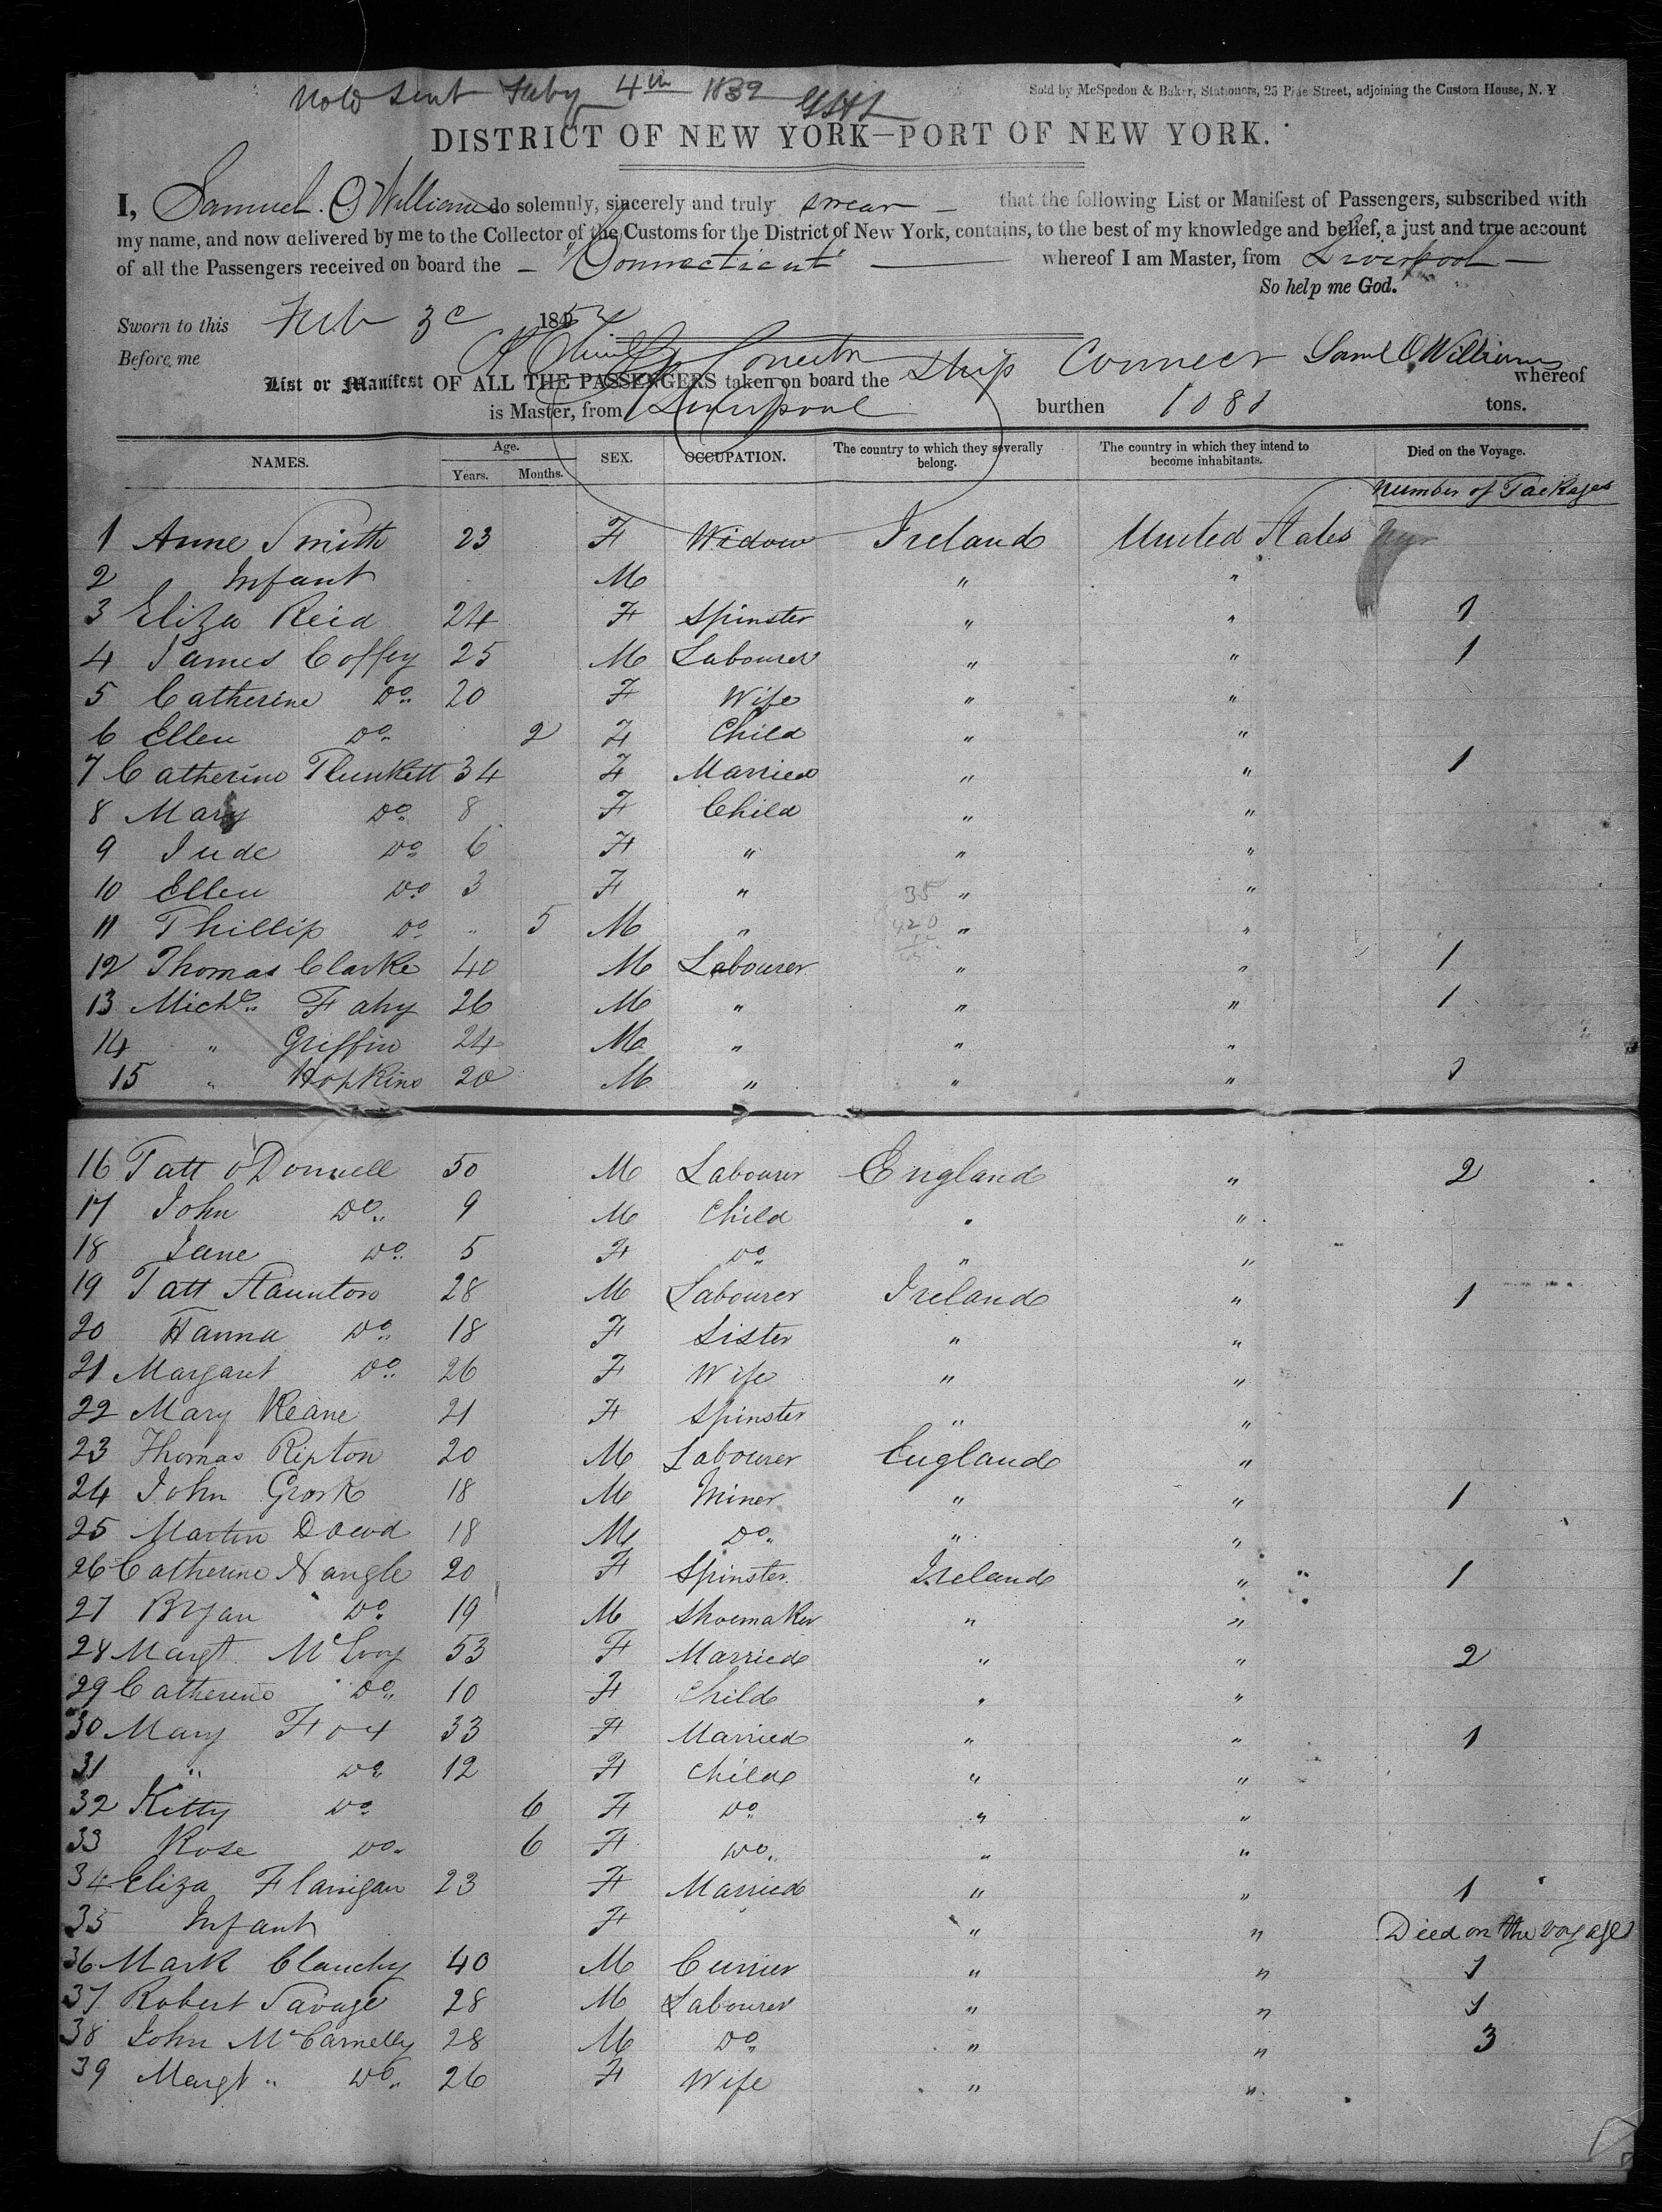 Sent Feby 4th
Sold by McSpedon & Baker, Stationers, 25 Pine Street, adjoining the Custom House, N. Y
DISTRICT OF NEW YORK—PORT OF NEW YORK.
I, Samuel. O. Williams do solemnly, sincerely and truly swear — that the following List or Manifest of Passengers, subscribed with
my name, and now delivered by me to the Collector of the Customs for the District of New York, contains, to the best of my knowledge and belief, a just and true account
of all the Passengers received on board the — "Connecticut" — whereof I am Master, from Liverpool —
So help me God.
Sworn to this Feb 3d 185
Before me Saml O Williams
List or Manifest OF ALL THE PASSENGERS taken on board the Ship Connect whereof
is Master, from Liverpool burthen 1081 tons.
NAMES. Age. Years. Months. SEX. OCCUPATION. The country to which they severally belong. The country in which they intend to become inhabitants. Died on the Voyage.
Number of Packages
1 Anne Smith 23 F Widow Ireland United States
2 Infant M " "
3 Eliza Reid 24 F Spinster " " 1
4 James Coffey 25 M Labourer " " 1
5 Catherine Do 20 F Wife " "
6 Ellen Do 2 F Child " "
7 Catherine Plunkett 34 F Married " " 1
8 Mary Do 8 F Child " "
9 Jude Do 6 F " " "
10 Ellen Do 3 F " " "
11 Phillip Do " 5 M " " "
12 Thomas Clarke 40 M Labourer " " 1
13 Michl Fahy 26 M " " " 1
14 " Griffin 24 M " " "
15 " Hopkins 20 M " " " 1
16 Patt O'Donnell 50 M Labourer England " 2
17 John Do 9 M Child " "
18 Jane Do 5 F Do " "
19 Patt Staunton 28 M Labourer Ireland " 1
20 Hanna Do 18 F Sister " "
21 Margaret Do 26 F Wife " "
22 Mary Keane 21 F Spinster " "
23 Thomas Ripton 20 M Labourer England "
24 John 18 M Miner " " 1
25 Martin Dowd 18 M Do " "
26 Catherine Nangle 20 F Spinster Ireland " 1
27 Bryan Do 19 M Shoemaker " "
28 Margt McEvoy 53 F Married " " 2
29 Catherine Do 10 F Child " "
30 Mary Fox 33 F Married " " 1
31 " Do 12 F Child " "
32 Kitty Do 6 F Do " "
33 Rose Do 6 F Do " "
34 Eliza Flanigan 23 F Married " " 1
35 Infant F " " Died on the voyage
36 Mark Clanchy 40 M Currier " " 1
37 Robert Savage 28 M Labourer " " 1
38 John McCarnelly 28 M Do " " 3
39 Margt " Do 26 F Wife " "